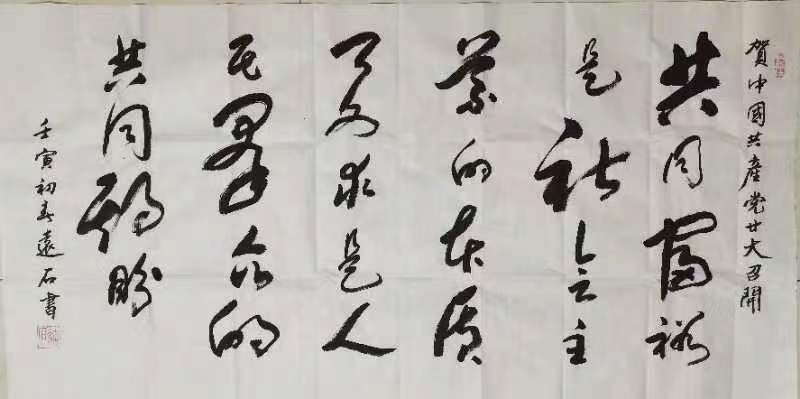 賀中國共產党廿大召開
共同富裕
是社会主
義的本质
要求是人
民群众的
共同期盼
壬寅初春遠石書